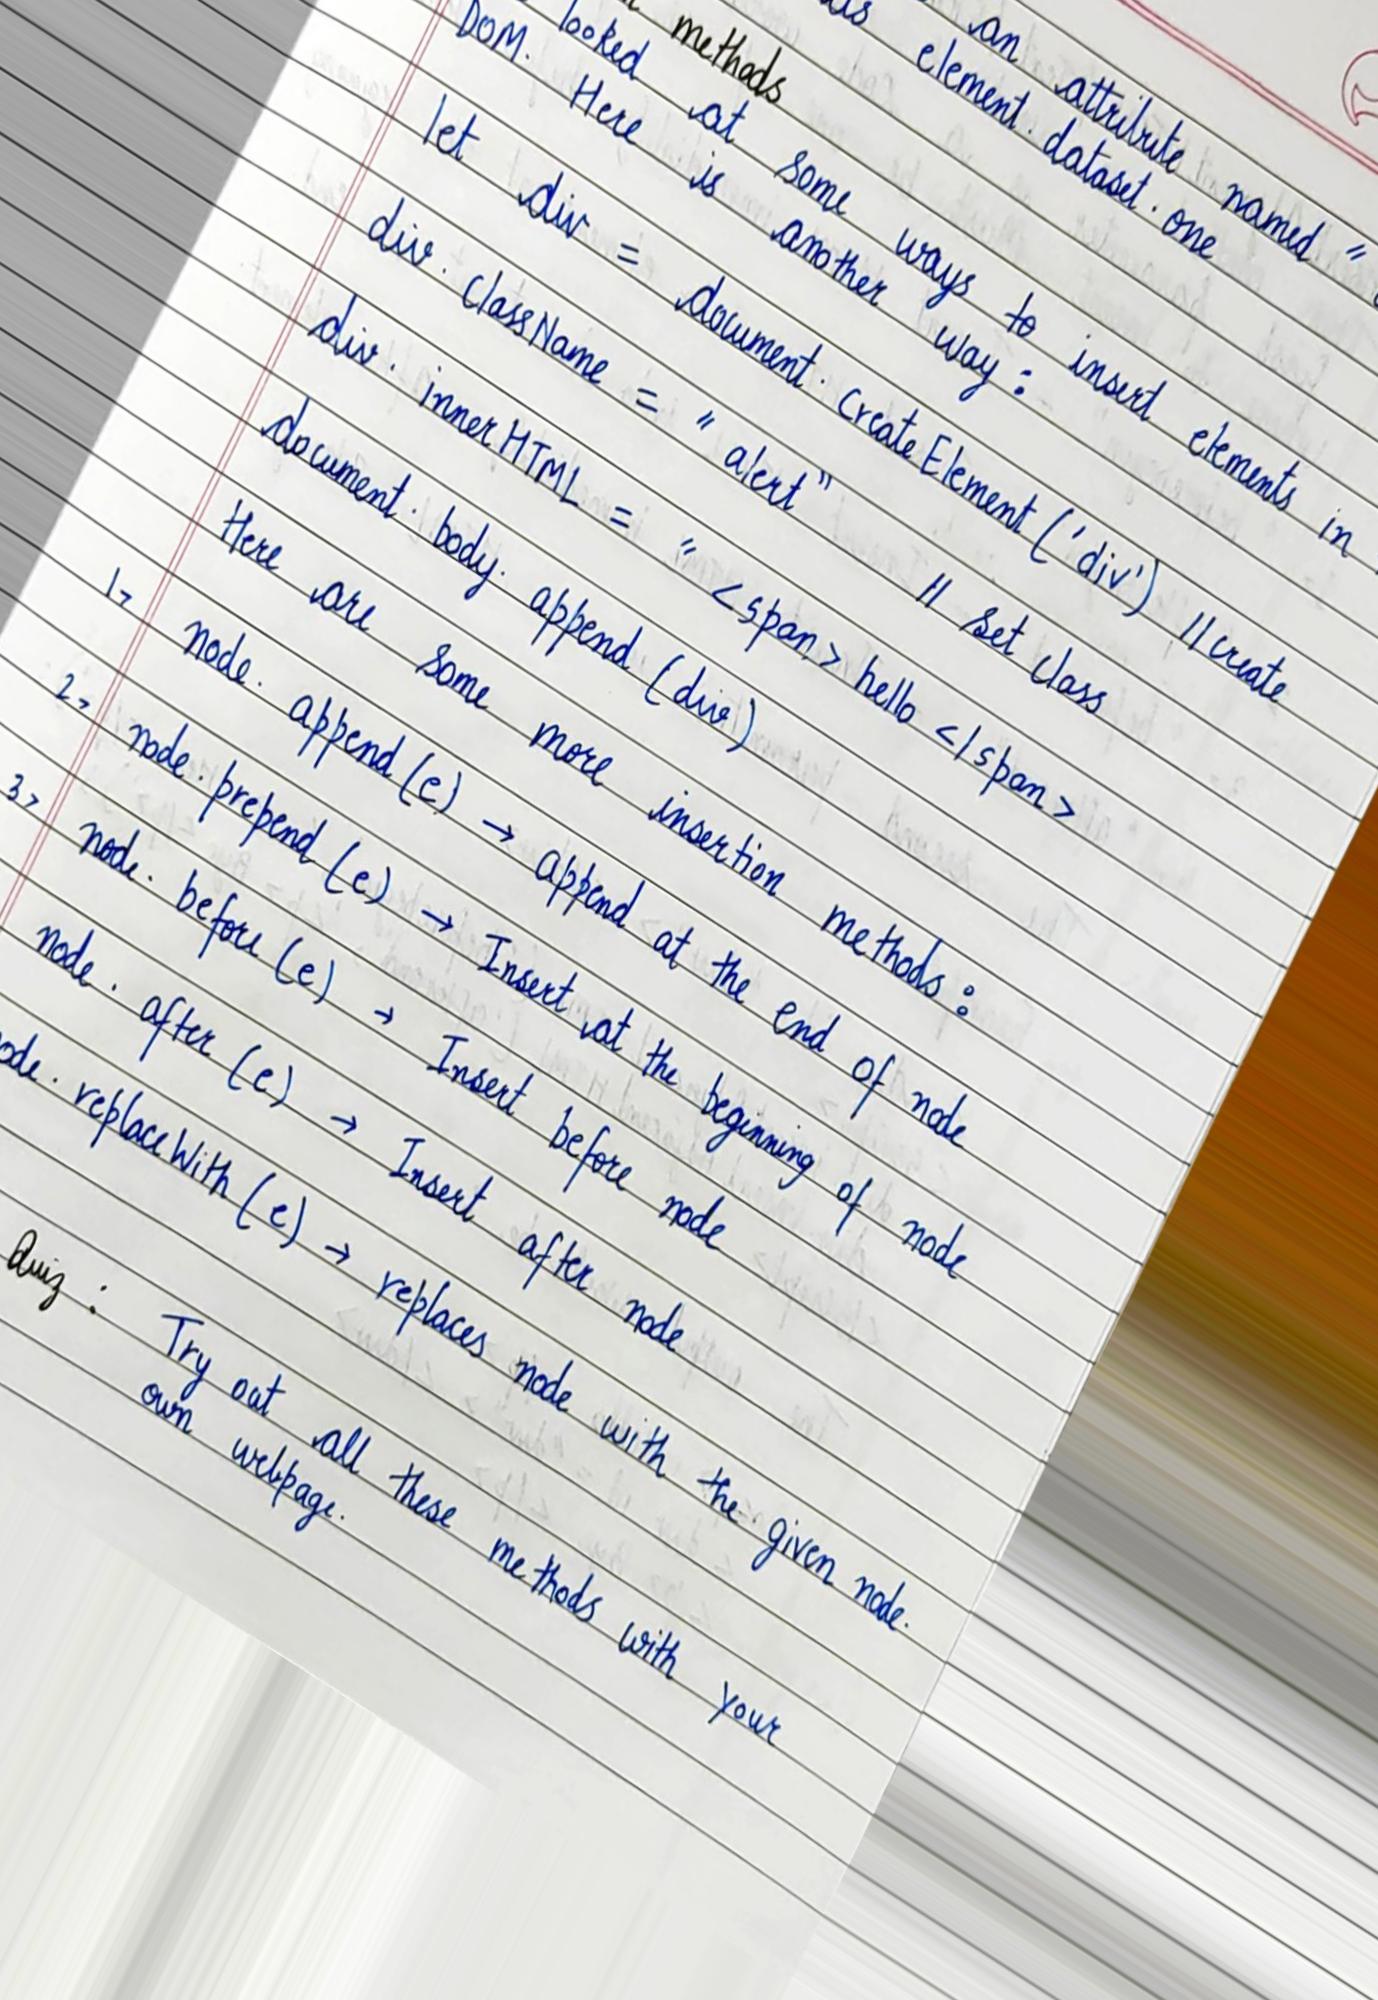 an attribute named "
element. dataset. one
methods
looked at some ways to insert elements in
DOM. Here is another way :
let div = document. createElement ('div') // create
div. className = " alert" // set class
div. innerHTML = " <span> hello </span>
document. body. append (div)
Here are some more insertion methods :
1> node. append (e) → append at the end of node
2> node. prepend (e) → Insert at the beginning of node
3> node. before (e) → Insert before node
node. after (e) → Insert after node
replaceWith (e) → replaces node with the given node.
Quiz : Try out all these methods with your
own webpage.